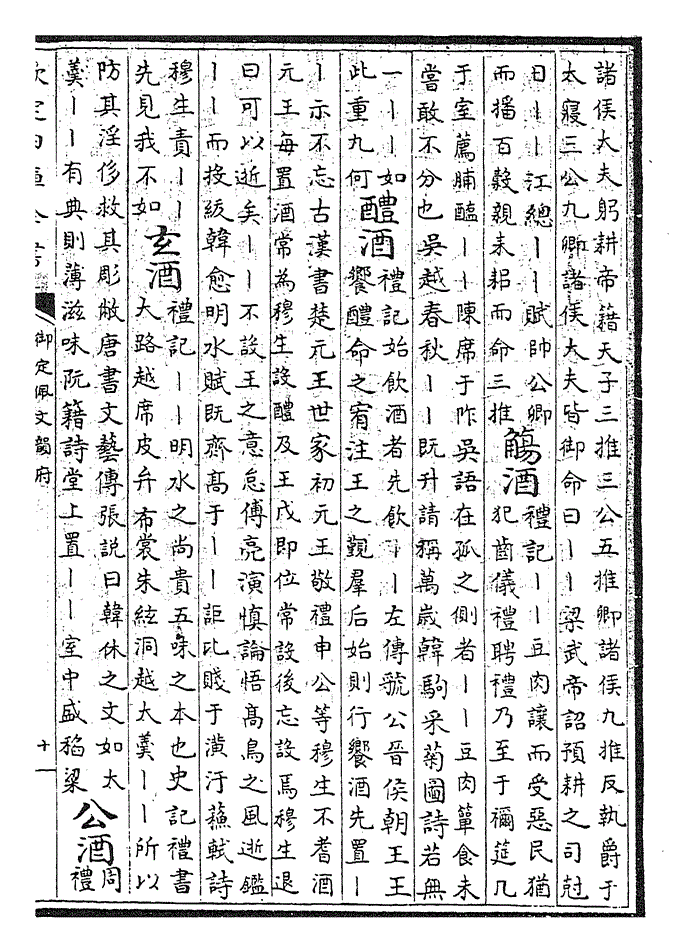 諸侯大夫躬耕帝籍天子三推三公五推卿諸侯九推反執爵于
太寢三公九卿諸侯大夫皆御命曰丨丨梁武帝詔預耕之司尅
日丨丨江總丨丨賦帥公卿
而播百穀親耒耜而命三推
觴酒
禮記丨丨豆肉讓而受惡民猶
犯齒儀禮聘禮乃至于禰筵几
于室薦脯醢丨丨陳席于阼吳語在孤之側者丨丨豆肉簞食未
嘗敢不分也吳越春秋丨丨既升請稱萬歲韓駒采菊圖詩若無
一丨丨丨如
此重九何
醴酒
禮記始飲酒者先飲丨丨左傳虢公晉侯朝王王
饗醴命之宥注王之覲羣后始則行饗酒先置丨
丨示不忘古漢書楚元王世家初元王敬禮申公等穆生不耆酒
元王每置酒常為穆生設醴及王戊即位常設後忘設焉穆生退
曰可以逝矣丨丨不設王之意怠傅亮演慎論悟髙鳥之風逝鑑
丨丨而投紱韓愈明水賦既齊髙于丨丨詎比賤于潢汙蘇軾詩
穆生責丨丨
先見我不如
玄酒
禮記丨丨明水之尚貴五味之本也史記禮書
大路越席皮弁布裳朱絃洞越大羹丨丨所以
防其淫侈救其彫敝唐書文藝傳張説曰韓休之文如太
羹丨丨有典則薄滋味阮籍詩堂上置丨丨室中盛稻粱
公酒
周
禮
欽定四庫全書
御定佩文韻府
十